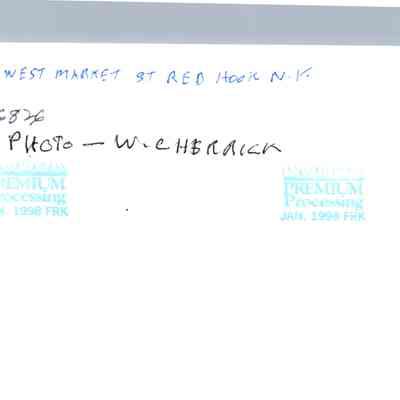 WEST MARKET ST RED HOOK N.Y.
6826
PHOTO — W. CHERRICK
PREMIUM
Processing
1998 FRK
PREMIUM
Processing
JAN. 1998 FRK